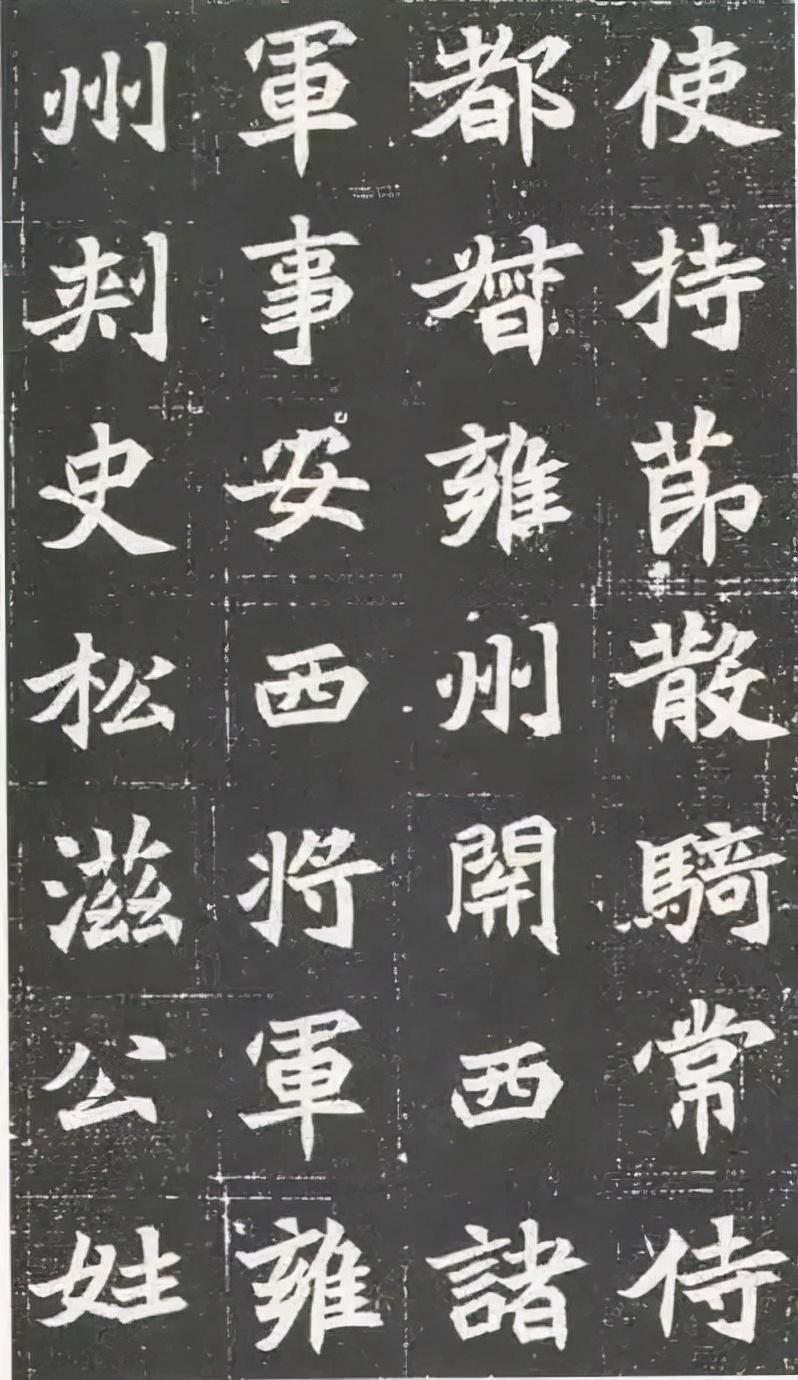 使持節散騎常侍
都督雍州關西諸
軍事安西將軍雍
州刺史松滋公姓